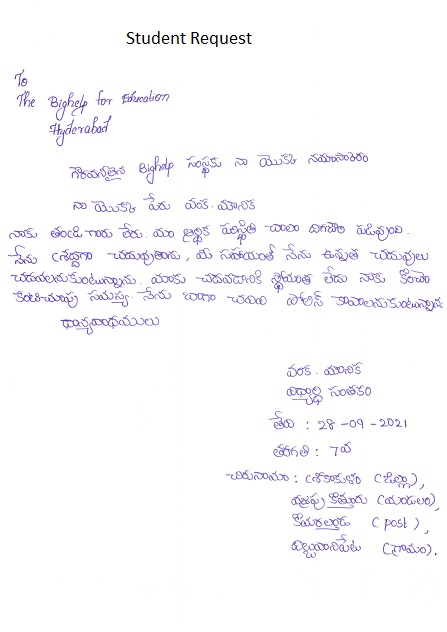 Student Request
To
The Bighelp for Education
Hyderabad
గౌరవనీతైన Bighelp సంస్థకు నా యొక్క నమస్కారం
నా యొక్క పేరు వంక. మౌనిక
నాకు తండ్రి గారు లేరు. మా ఆర్థిక పరిస్థితి చాలా దిగజారి పడివుంది.
నేను శ్రద్దగా చదువుతాను, మీ సహాయంతో నేను ఉన్నత చదువులు
చదవాలనుకుంటున్నాను. మాకు చదవడానికి స్థోమత లేదు నాకు కొంచెం
కంటిచూపు సమస్య. నేను బాగా చదివి పోలీస్ కావాలనుకుంటున్నాను
ధాన్యవాధములు
వంక. మౌనిక
విధ్యార్థి సంతకం
తేది : 28-09-2021
తరగతి : 7వ
చిరునామా : శ్రీకాకుళం (జిల్లా),
కొత్తూరు (మండలం),
(post),
(గ్రామం).